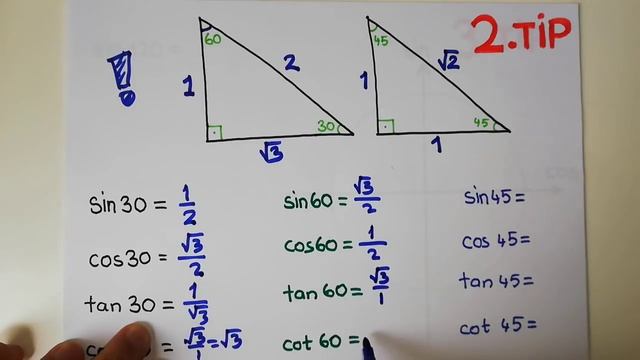 2.TİP
!
60
1
2
30
√3
45
1
√2
45
1
sin30 = 1/2
cos30 = √3/2
tan 30 = 1/√3
= √3/1 = √3
sin60 = √3/2
cos60 = 1/2
tan 60 = √3/1
cot 60 =
sin45 =
cos 45=
tan 45=
cot 45=